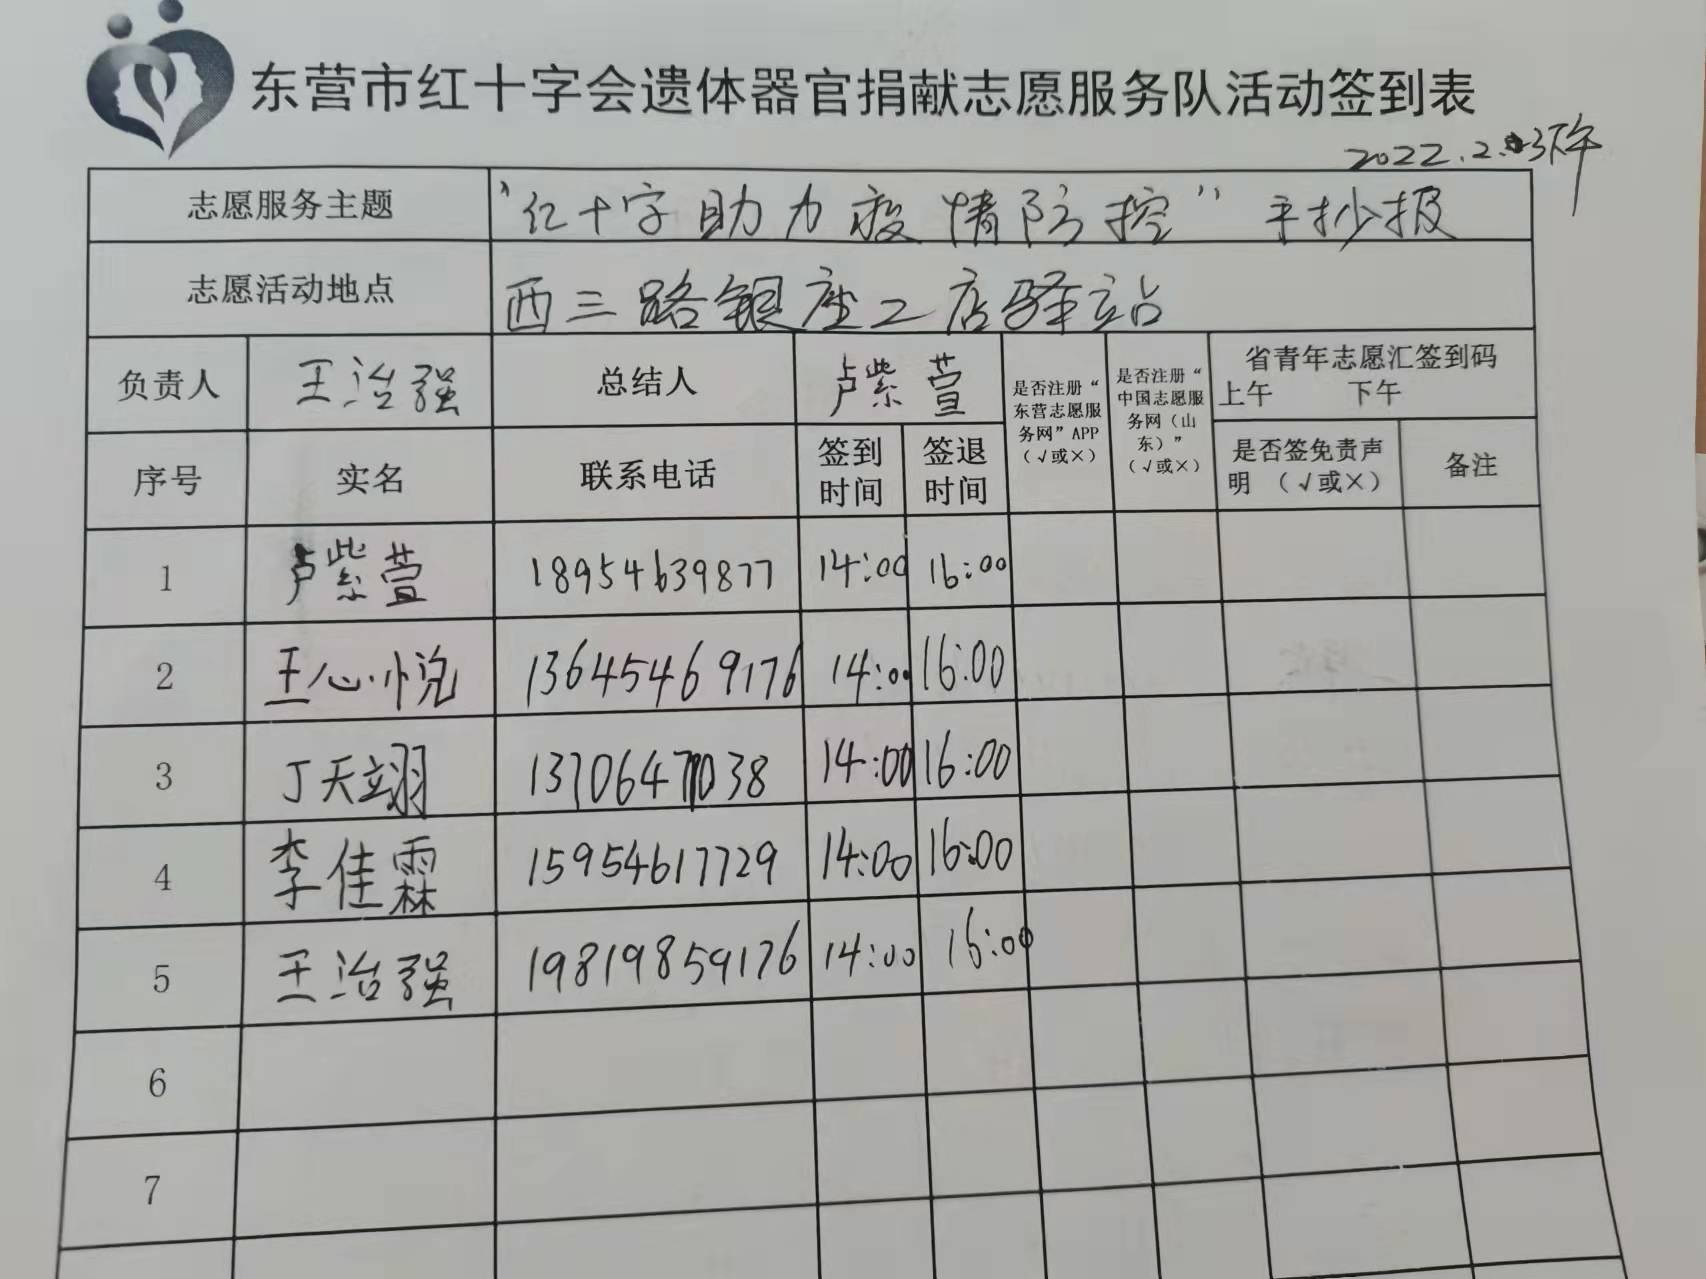 东营市红十字会遗体器官捐献志愿服务队活动签到表
2022.2.3下午
志愿服务主题 "红十字助力疫情防控"手抄报
志愿活动地点 西三路银座二店驿站
负责人 王治强 总结人 卢紫萱 是否注册“东营志愿服务网”APP（√或×） 是否注册“中国志愿服务网（山东）”（√或×） 省青年志愿汇签到码
上午 下午
序号 实名 联系电话 签到时间 签退时间 是否签免责声明 （√或×） 备注
1 卢紫萱 18954639877 14:00 16:00
2 王心悦 13645469176 14:00 16:00
3 丁天翊 14:00 16:00
4 李佳霖 15954617729 14:00 16:00
5 王治强 19819859176 14:00 16:00
6
7